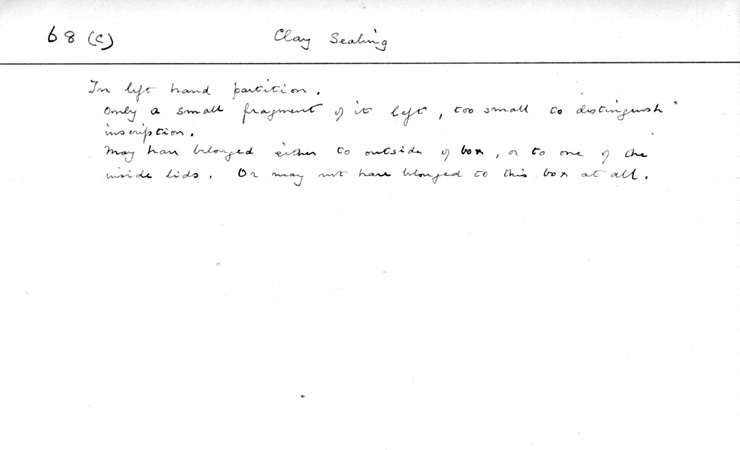 68 (c) Clay Sealing
In left hand partition.
Only a small fragment of it left, too small to distinguish
inscription.
May have belonged either to outside of box, or to one of the
inside lids. Or may not have belonged to this box at all.